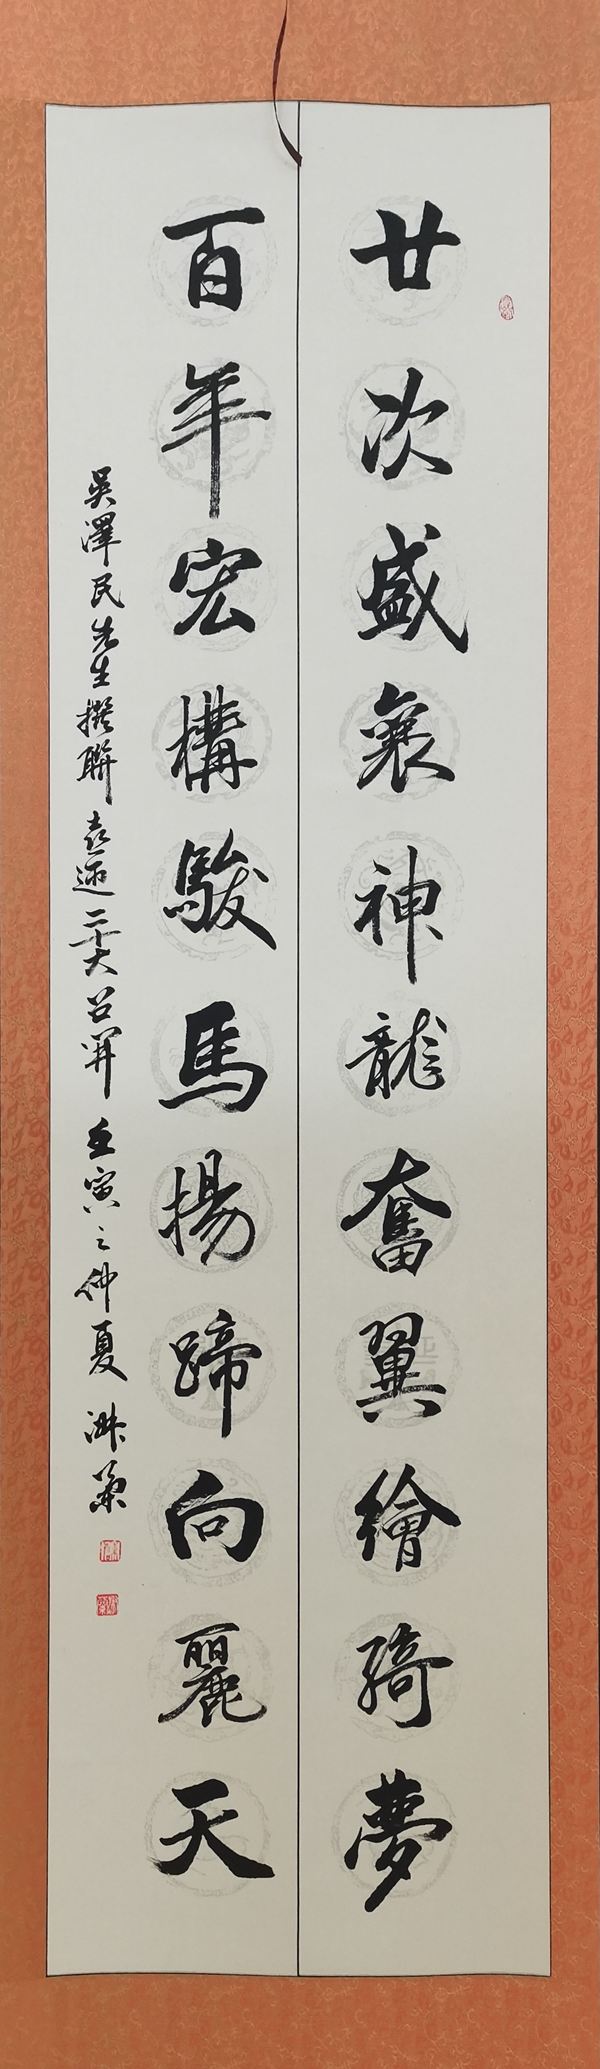 廿次盛襄神龍奮翼繪綺夢
百年宏構駿馬揚蹄向麗天
吳澤民先生撰聯 喜迎二十大召開 壬寅之仲夏